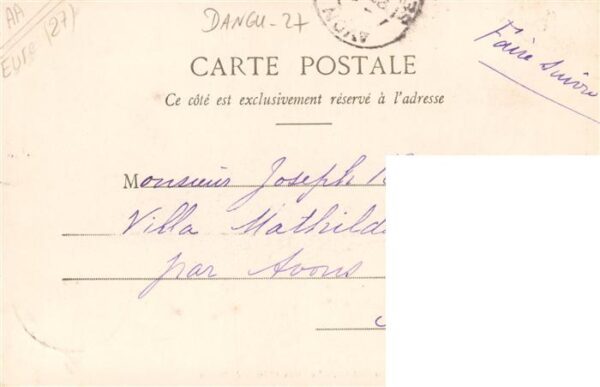 AA
Eure (27)
DANGU-27
Faire suivre
CARTE POSTALE
Ce côté est exclusivement réservé à l'adresse
Monsieur Joseph
Villa Mathilde
par Avons